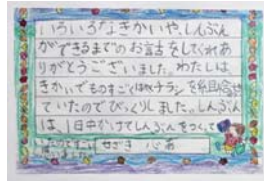 いろいろなきかいや、しんぶん
ができるまでのお話をしてくれあ
りがとうございました。わたしは
きかいでものすごくはやくチラシを組合せ
ていたのでびっくりしました。しんぶん
は、1日中かけてしんぶんをつくって